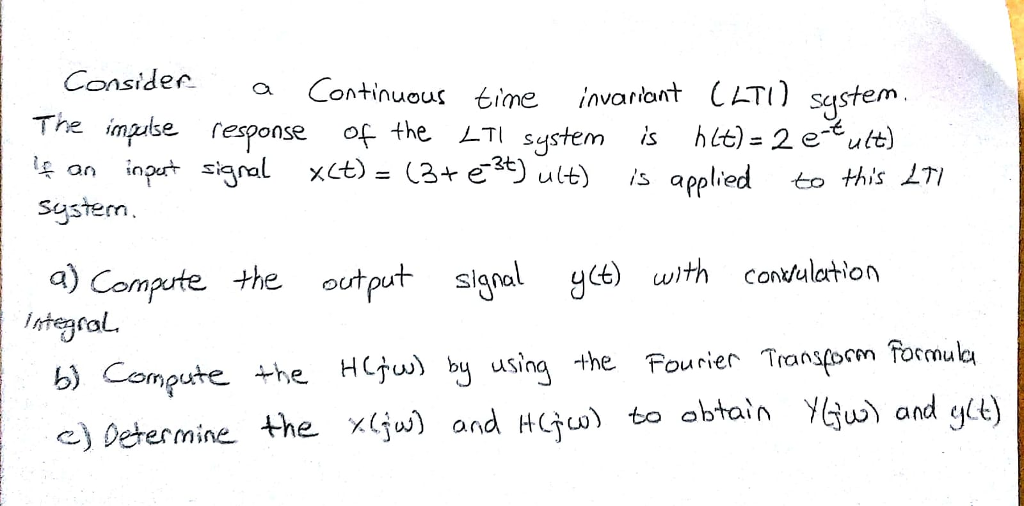 Consider a Continuous time invariant (LTI) system.
The impulse response of the LTI system is h(t) = 2 e^-t u(t)
If an input signal x(t) = (3 + e^-3t) u(t) is applied to this LTI
system.
a) Compute the output signal y(t) with convulation
Integral.
b) Compute the H(jw) by using the Fourier Transform Formula
c) Determine the x(jw) and H(jw) to obtain Y(jw) and y(t)